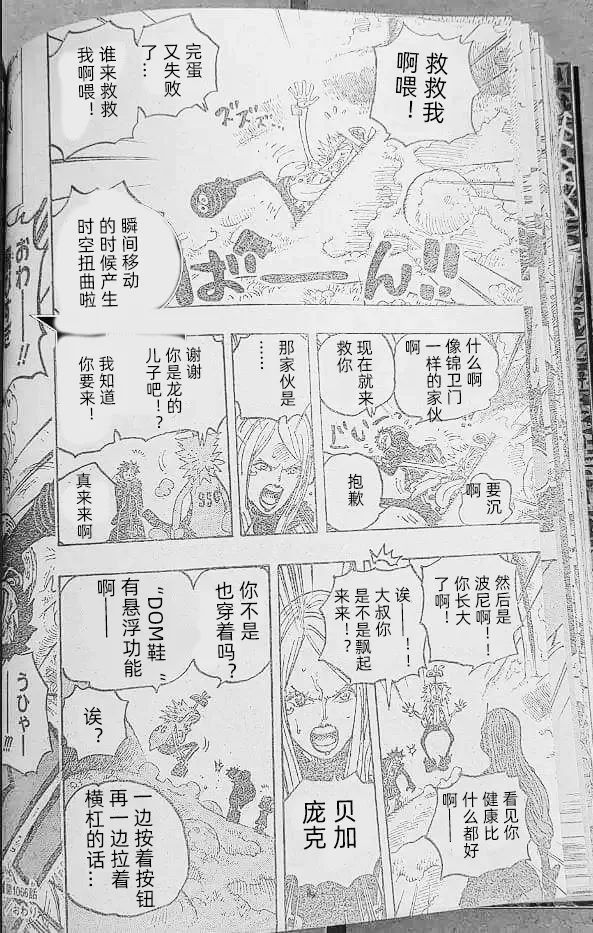 救救我
啊喂！
完蛋
又失败
了…
谁来救救
我啊喂！
ズズズ!!
ばーん!!
瞬间移动
的时候产生
时空扭曲啦
什么啊
像锦卫门
一样的家伙
啊
现在就来
救你
要沉
啊
抱歉
那家伙是
……
谢谢
你是龙的
儿子吧!？
我知道
你要来！
真来来啊
然后是
波尼啊!！
你长大
了啊！
诶——！！
大叔你
是不是飘起
来来！？
看见你
健康比
什么都好
啊——
贝加
庞克
你不是
也穿着吗？
“DOM鞋“
有悬浮功能
啊——
诶？
一边按着按钮
再一边拉着
横杠的话…
おわ——!!
うひゃ——!!!
第1066話
おわり